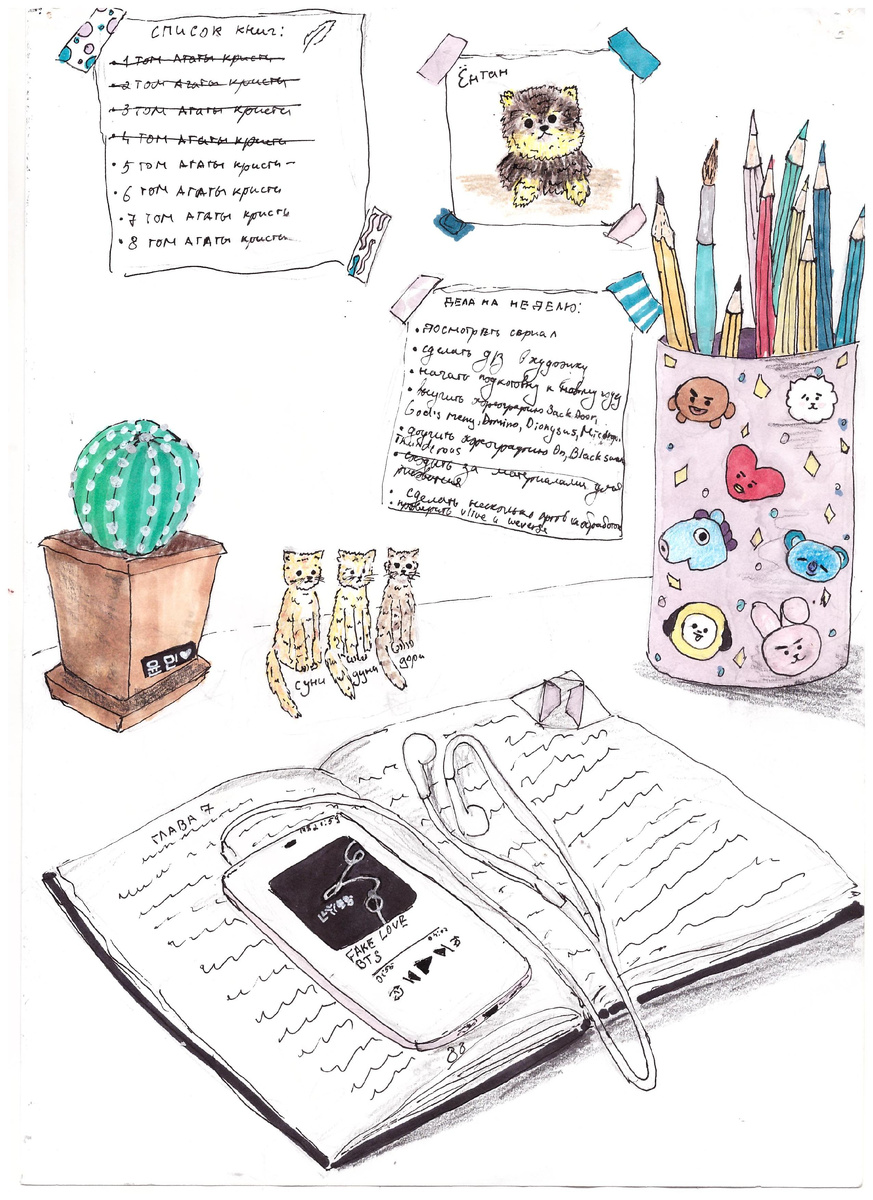 СПИСОК КНИГ:
• 1 ТОМ АГАТЫ КРИСТИ
• 2 ТОМ АГАТЫ КРИСТИ
• 3 ТОМ АГАТЫ КРИСТИ
• 4 ТОМ АГАТЫ КРИСТИ
• 5 ТОМ АГАТЫ КРИСТИ
• 6 ТОМ АГАТЫ КРИСТИ
• 7 ТОМ АГАТЫ КРИСТИ
• 8 ТОМ АГАТЫ КРИСТИ
Ёнтан
ДЕЛА НА НЕДЕЛЮ:
• посмотреть сериал
• сделать д/з в художку
• начать подготовку к новому году
• выучить хореографию Back Door,
God's Menu, Domino, Dionysus, Mic Drop,
• доучить хореографию On, Black swan
Thunderous
• сходить за материалами для
рисования
• сделать несколько артов
• проверить vlive и weverse
윤민
суни
дуни
дори
ГЛАВА 7
FAKE LOVE
BTS